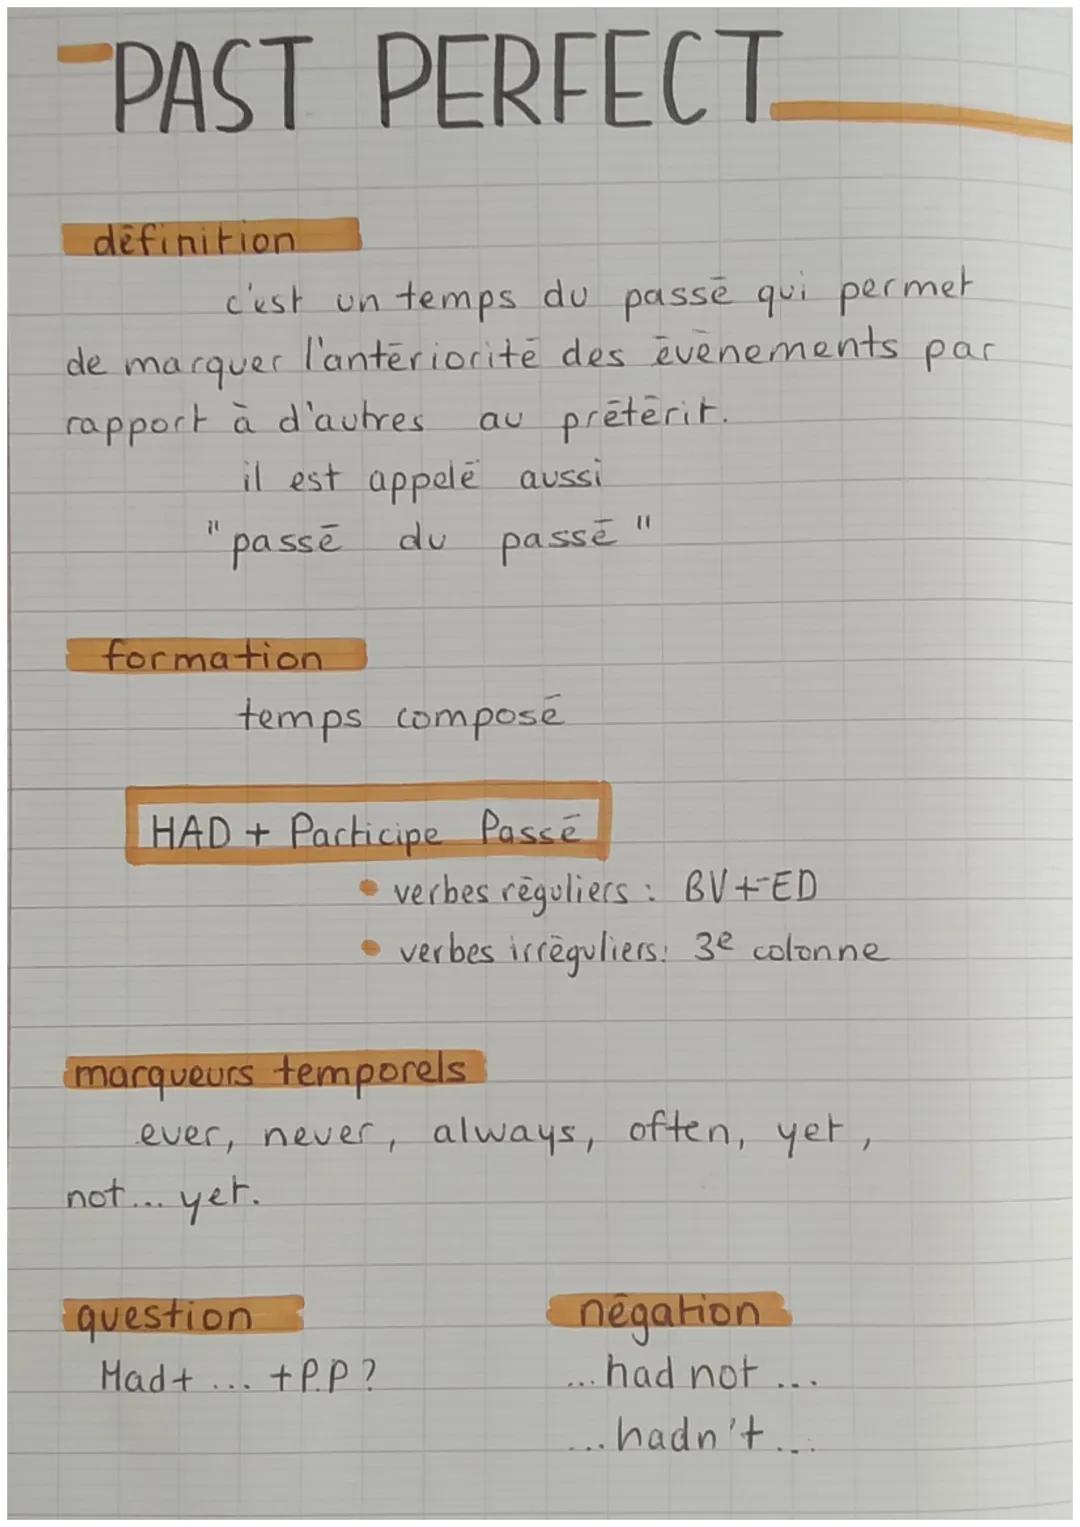 PAST PERFECT
définition
c'est un temps du passé qui permet
de marquer l'antériorité des évènements par
rapport à d'autres au prétérit.
il est appelé aussi
"passé du passé"
formation
temps composé
HAD + Participe Passé
• verbes réguliers : BV+-ED
• verbes irréguliers: 3e colonne
marqueurs temporels
ever, never, always, often, yet,
not... yet.
question
négation
Had + ... + P.P ?
... had not ...
... hadn't ...